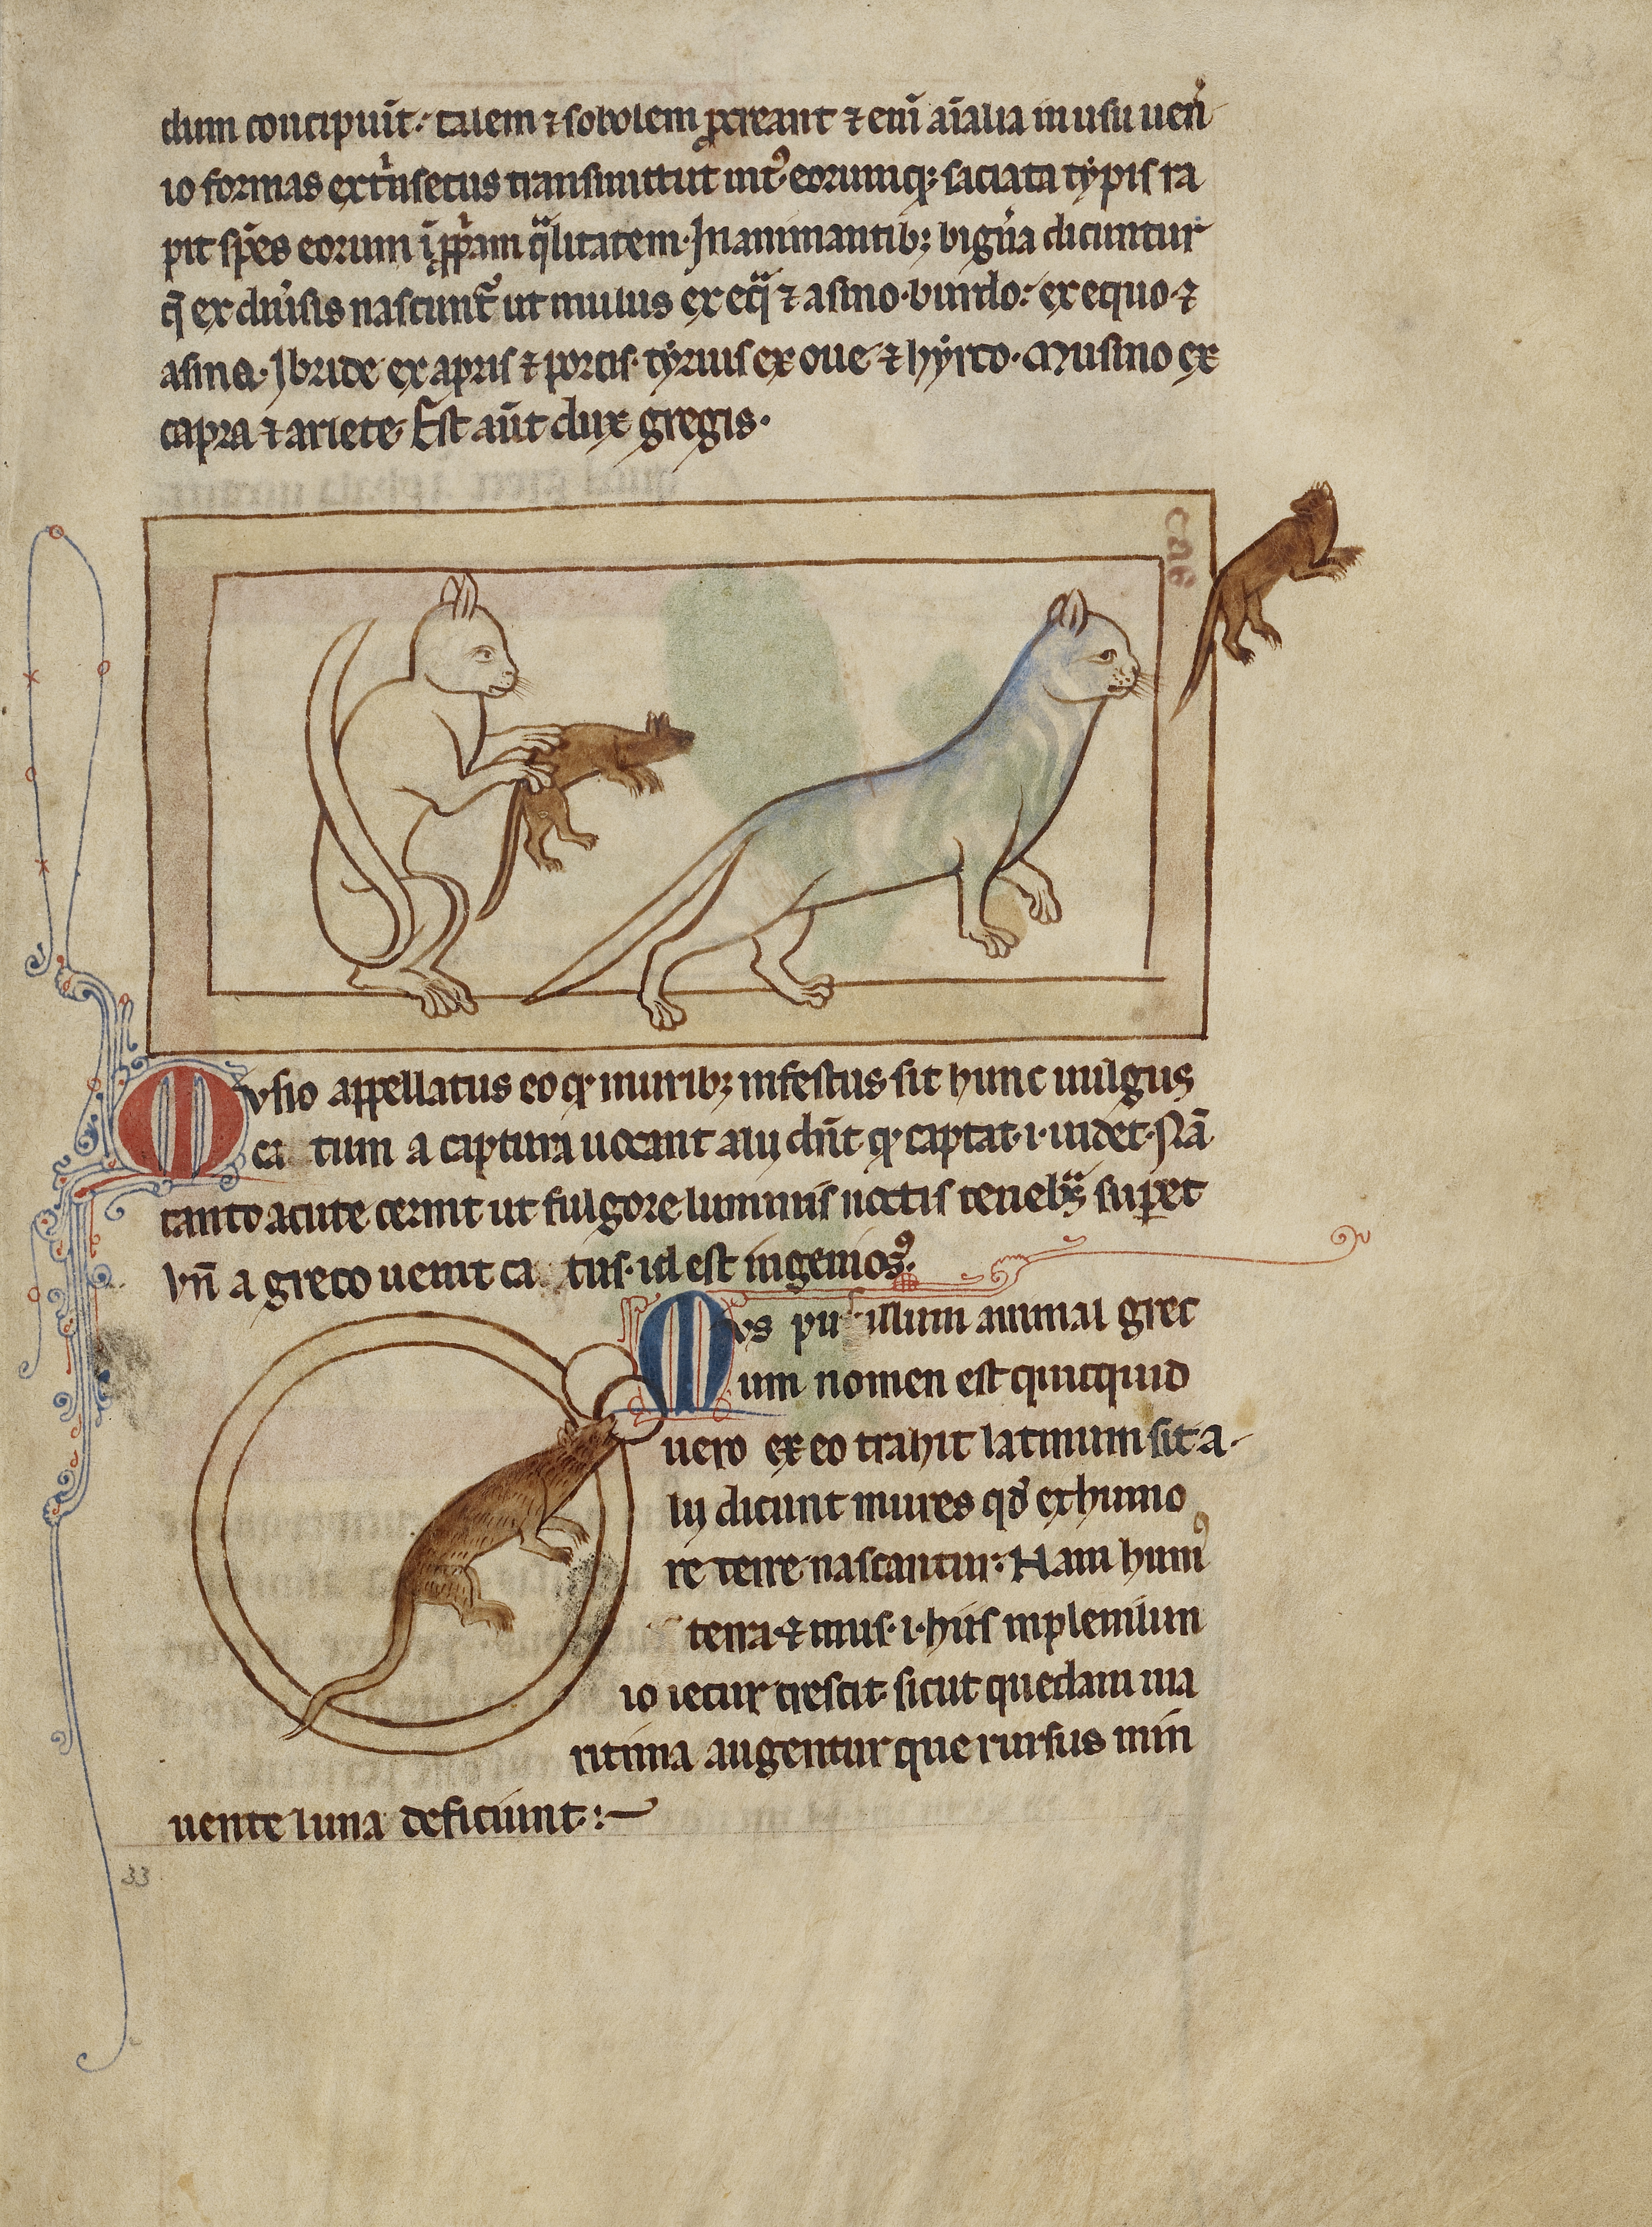 dum concipiūt. talem ⁊ sobolem ꝓcreant ⁊ eni aīalia in usu uen̾
io formas ext̾nsecus transmittut int᷒ eorumqꝫ saciata typis ra
pit spēs eorum ī ꝓpͥam qͣlitatem. In animantibꝫ bigūa dicuntur
q̄ ex diūsis nascunt᷑ ut mulus ex eqͣ ⁊ asino. burdo. ex equo ⁊
asina. Ibride ex apris ⁊ porcis. tyrius ex oue ⁊ hyrco. Musino ex
capra ⁊ ariete. Est aūt dux gregis.
cat
Mvsio appellatus eo ꝙ muribꝫ infestus sit hunc uulgus
ca tum a captura uocant alii dn̄t ꝙ captat .i. uidet. Nā
tanto acute cernit ut fulgore luminis noctis tenebͣs supet
Vn̄ a greco uenit ca tus. id est ingenios᷒.
Mvs pusillum animal grec
um nomen est quicquid
uero ex eo trahit latinum sit a.
lii dicunt mures qd̄ ex humo
re terre nascantur. Nam hum᷒
terra ⁊ mus .i. hiis inplenilun
io iecur crescit sicut quedam ma
ritima augentur que rursus min
uente luna deficiunt.
33